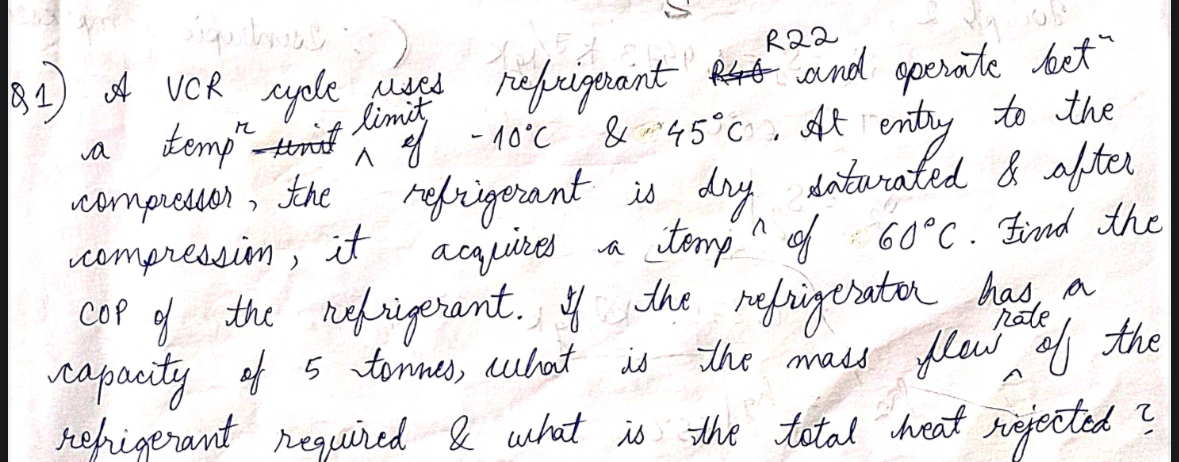 Q1) A VCR cycle uses refrigerant R22 and operate betn
a tempr limit of -10°C & 45°C. At entry to the
compressor, the refrigerant is dry saturated & after
compression, it acquires a tempr of 60°C. Find the
COP of the refrigerant. If the refrigerator has a
capacity of 5 tonnes, what is the mass flow rate of the
refrigerant required & what is the total heat rejected ?